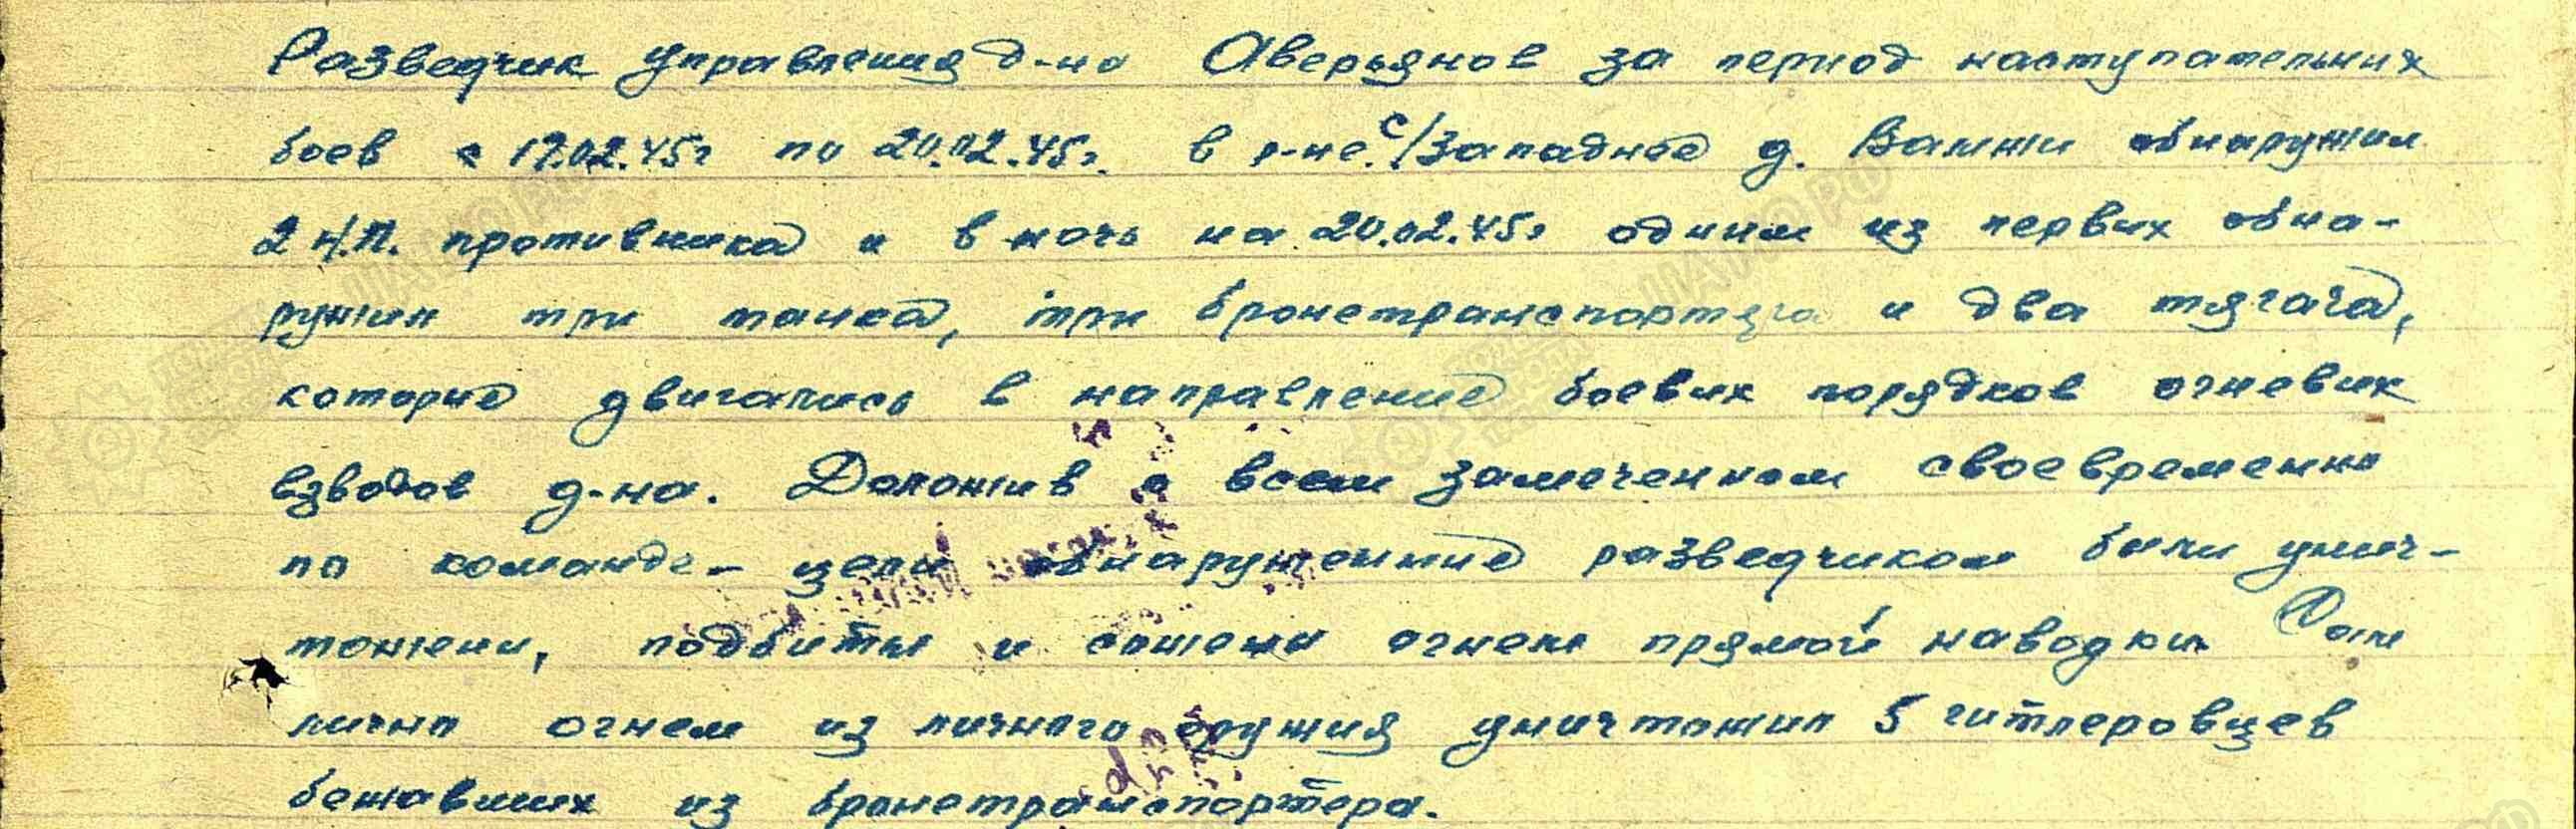 Разведчик управления д-на Аверьянов за период наступательных
боев с 17.02.45г по 20.02.45г. в р-не с/западнее д. Вамти обнаружил
2 Н.П. противника и в ночь на 20.02.45г одним из первых обна-
ружил три танка, три бронетранспортера и два тягача,
которые двигались в направление боевых порядков огневых
взводов д-на. Доложив о всем замеченном своевременно
по команде - цели обнаруженные разведчиком были унич-
тожены, подбиты и сожжены огнем прямой наводки. Сам
лично огнем из личного оружия уничтожил 5 гитлеровцев
бежавших из бронетранспортера.